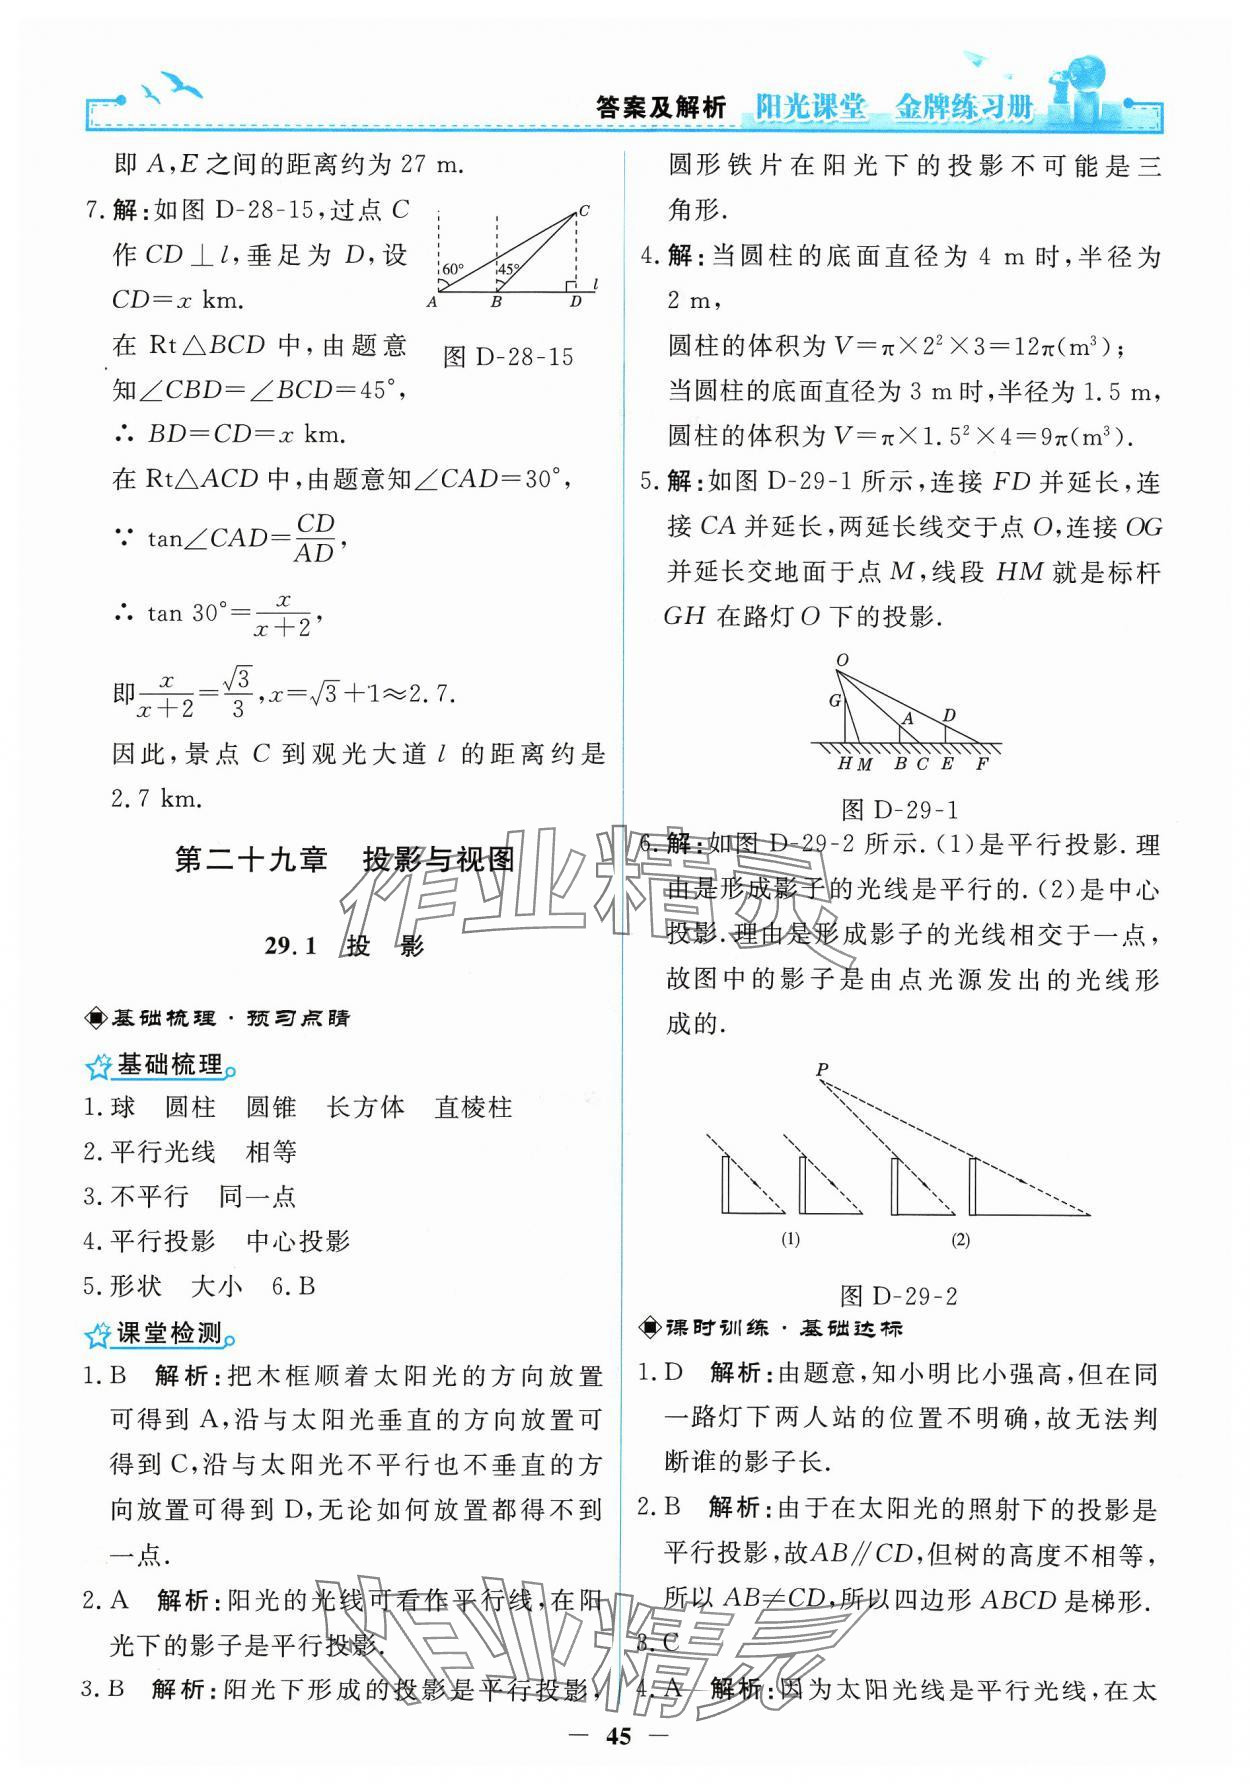 答案及解析 阳光课堂 金牌练习册
即 A,E 之间的距离约为 27 m.
7. 解:如图 D-28-15,过点 C
作 CD⊥l,垂足为 D,设
CD=x km.
在 Rt△BCD 中,由题意
知∠CBD=∠BCD=45°,
∴ BD=CD=x km.
C
60° 45° l
A B D
图 D-28-15
在 Rt△ACD 中,由题意知∠CAD=30°,
∵ tan∠CAD=CD/AD,
∴ tan 30°=x/(x+2),
即x/(x+2)=√3/3,x=√3+1≈2.7.
因此,景点 C 到观光大道 l 的距离约是
2.7 km.
第二十九章 投影与视图
29.1 投 影
基础梳理·预习点睛
基础梳理
1. 球 圆柱 圆锥 长方体 直棱柱
2. 平行光线 相等
3. 不平行 同一点
4. 平行投影 中心投影
5. 形状 大小 6. B
课堂检测
1. B 解析:把木框顺着太阳光的方向放置
可得到 A,沿与太阳光垂直的方向放置可
得到 C,沿与太阳光不平行也不垂直的方
向放置可得到 D,无论如何放置都得不到
一点.
2. A 解析:阳光的光线可看作平行线,在阳
光下的影子是平行投影.
3. B 解析:阳光下形成的投影是平行投影,
圆形铁片在阳光下的投影不可能是三
角形.
4. 解:当圆柱的底面直径为 4 m 时,半径为
2 m,
圆柱的体积为 V=π×2²×3=12π(m³);
当圆柱的底面直径为 3 m 时,半径为 1.5 m,
圆柱的体积为 V=π×1.5²×4=9π(m³).
5. 解:如图 D-29-1 所示,连接 FD 并延长,连
接 CA 并延长,两延长线交于点 O,连接 OG
并延长交地面于点 M,线段 HM 就是标杆
GH 在路灯 O 下的投影.
O
G A D
H M B C E F
图 D-29-1
6. 解:如图 D-29-2 所示.(1)是平行投影.理
由是形成影子的光线是平行的.(2)是中心
投影.理由是形成影子的光线相交于一点,
故图中的影子是由点光源发出的光线形
成的.
P
(1) (2)
图 D-29-2
课时训练·基础达标
1. D 解析:由题意,知小明比小强高,但在同
一路灯下两人站的位置不明确,故无法判
断谁的影子长.
2. B 解析:由于在太阳光的照射下的投影是
平行投影,故AB∥CD,但树的高度不相等,
所以 AB≠CD,所以四边形 ABCD 是梯形.
3. C
4. A 解析:因为太阳光线是平行光线,在太
— 45 —
作业精灵
作业精灵